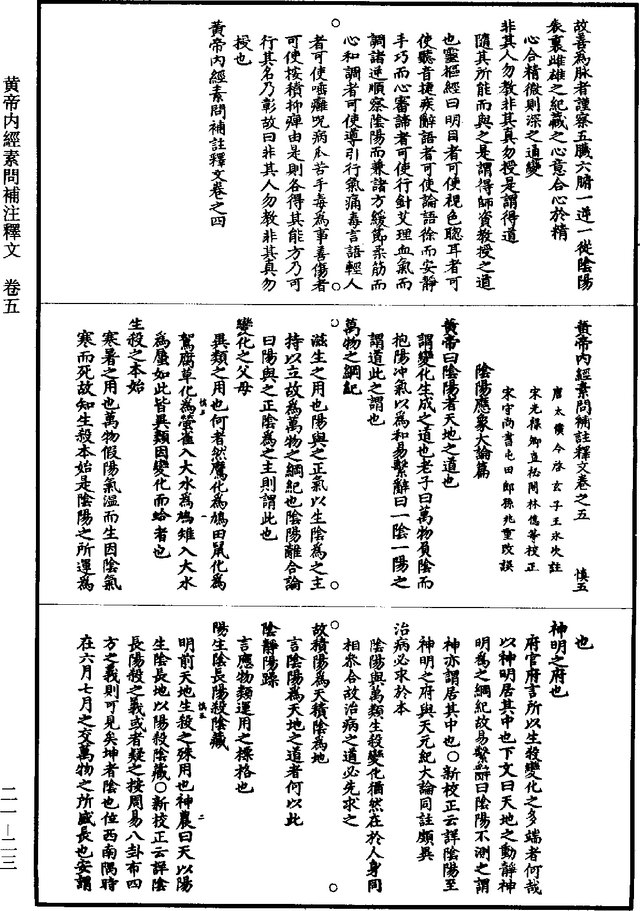 黄帝內經素問補注釋文　卷五
二一—二三
故善為脉者謹察五臟六腑一逆一從陰陽
表裏雌雄之紀藏之心意合心於精
心合精微則深之通變
非其人勿教非其真勿授是謂得道
隨其所能而與之是謂得師資教授之道
也靈樞經曰明目者可使視色聦耳者可
使聽音捷疾辭語者可使論語徐而安靜
手巧而心審諦者可使行針艾理血氣而
調諸逆順察陰陽而兼諸方緩節柔筋而
心和調者可使導引行氣痛毒言語輕人
者可使唾癰呪病爪苦手毒為事善傷者
可使按積抑痺由是則各得其能方乃可
行其名乃彰故曰非其人勿教非其真勿
授也
黃帝內經素問補註釋文卷之四
黃帝內經素問補註釋文卷之五　慎五
唐太僕令啓玄子王冰次註
宋光祿卿直秘閣林億等校正
宋守尚書屯田郎孫兆重改誤
陰陽應象大論篇
黃帝曰陰陽者天地之道也
謂變化生成之道也老子曰萬物負陰而
抱陽冲氣以為和易繫辭曰一陰一陽之
謂道此之謂也
萬物之綱紀
滋生之用也陽與之正氣以生陰為之主
持以立故為萬物之綱紀也陰陽離合論
曰陽與之正陰為之主則謂此也
變化之父母
異類之用也何者然鷹化為鳩田鼠化為
鴽腐草化為螢雀入大水為蛤雉入大水
為蜃如此皆異類因變化而
者也
生殺之本始
寒暑之用也萬物假陽氣溫而生因陰氣
寒而死故知生殺本始是陰陽之所運為
也
神明之府也
府宮府言所以生殺變化之多端者何哉
以神明居其中也下文曰天地之動靜神
明為之綱紀故易繫辭曰陰陽不測之謂
神亦謂居其中也○新校正云詳陰陽至
神明之府與天元紀大論同註頗異
治病必求於本
陰陽與萬類生殺變化猶然在於人身同
相參合故治病之道必先求之
故積陽為天積陰為地
言陰陽為天地之道者何以此
陰靜陽躁
言應物類運用之標格也
陽生陰長陽殺陰藏
明前天地生殺之殊用也神農曰天以陽
生陰長地以陽殺陰藏○新校正云詳陰
長陽殺之義或者疑之按周易八卦布四
方之義則可見矣坤者陰也位西南隅時
在六月七月之交萬物之所盛長也安謂